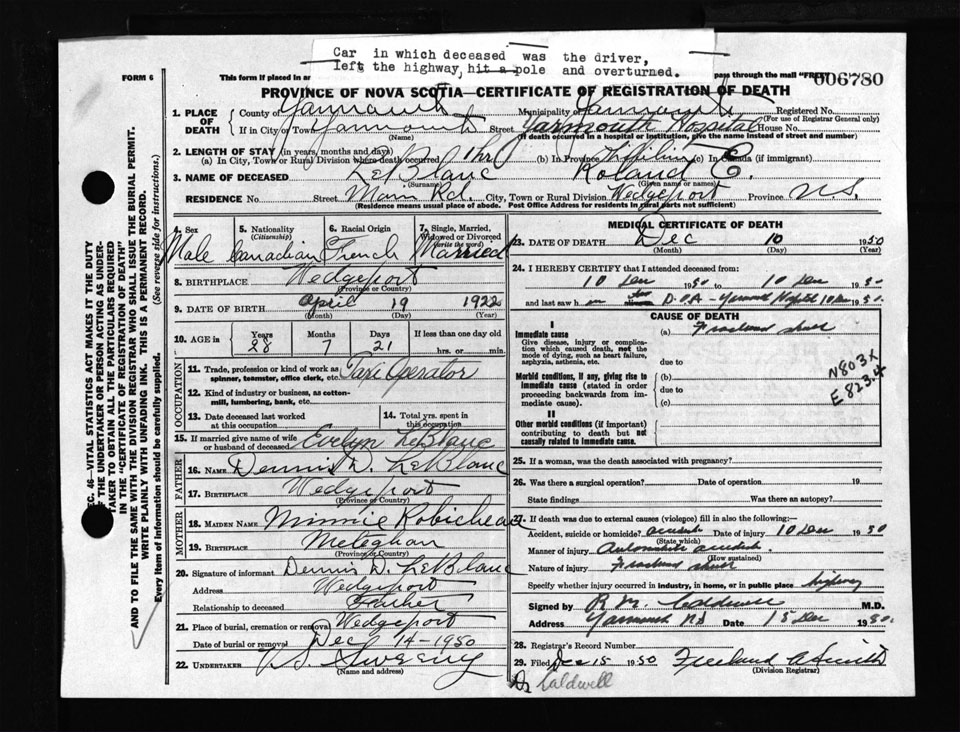 Car in which deceased was the driver,
left the highway, hit a pole and overturned.
FORM 6
This form if placed in an
pass through the mail "FREE"
006780
PROVINCE OF NOVA SCOTIA—CERTIFICATE OF REGISTRATION OF DEATH
1. PLACE OF DEATH
County of Yarmouth Municipality of Yarmouth Registered No.
(For use of Registrar General only)
If in City or Town Yarmouth Street Yarmouth Hospital House No.
(Name) (If death occurred in a hospital or institution, give the name instead of street and number)
2. LENGTH OF STAY (in years, months and days)
(a) In City, Town or Rural Division where death occurred 1 hr (b) In Province (c) In Canada (if immigrant)
3. NAME OF DECEASED LeBlanc Roland E.
(Surname) (Given name or names)
RESIDENCE No. Street Main Rd. City, Town or Rural Division Wedgeport Province N.S.
(Residence means usual place of abode. Post Office Address for residents in rural parts not sufficient)
4. Sex 5. Nationality (Citizenship) 6. Racial Origin 7. Single, Married, Widowed or Divorced (write the word)
Male Canadian French Married
8. BIRTHPLACE Wedgeport
(Province or Country)
9. DATE OF BIRTH April 19 1922
(Month) (Day) (Year)
10. AGE in Years Months Days If less than one day old
28 7 21 hrs. or min.
OCCUPATION
11. Trade, profession or kind of work as spinner, teamster, office clerk, etc. Taxi Operator
12. Kind of industry or business, as cotton-mill, lumbering, bank, etc.
13. Date deceased last worked at this occupation
14. Total yrs. spent in this occupation
15. If married give name of wife or husband of deceased Evelyn LeBlanc
FATHER
16. NAME Dennis D. LeBlanc
17. BIRTHPLACE Wedgeport
(Province or Country)
MOTHER
18. MAIDEN NAME Minnie Robicheau
19. BIRTHPLACE Meteghan
(Province or Country)
20. Signature of informant Dennis D. LeBlanc
Address Wedgeport
Relationship to deceased Father
21. Place of burial, cremation or removal Wedgeport
Date of burial or removal Dec 14-1950
22. UNDERTAKER V.S. Sweeny
MEDICAL CERTIFICATE OF DEATH
23. DATE OF DEATH Dec 10 1950
(Month) (Day) (Year)
24. I HEREBY CERTIFY that I attended deceased from:
10 Dec 1950 to 10 Dec 1950
and last saw h D.O.A - Yarmouth Hospital 10 Dec 1950.
CAUSE OF DEATH
I
Immediate cause
Give disease, injury or complication which caused death, not the mode of dying, such as heart failure, asphyxia, asthenia, etc.
(a) Fractured skull
due to
Morbid conditions, if any, giving rise to immediate cause (stated in order proceeding backwards from immediate cause).
(b)
due to
(c)
N803X
E823.4
II
Other morbid conditions (if important) contributing to death but not causally related to immediate cause.
25. If a woman, was the death associated with pregnancy?
26. Was there a surgical operation? Date of operation 19
State findings Was there an autopsy?
27. If death was due to external causes (violence) fill in also the following:
Accident, suicide or homicide? accident Date of injury 10 Dec 1950
(State which)
Manner of injury Automobile accident
(How sustained)
Nature of injury Fractured skull
Specify whether injury occurred in industry, in home, or in public place highway
Signed by R M Caldwell M.D.
Address Yarmouth NS Date 15 Dec 1950.
28. Registrar's Record Number
29. Filed Dec 15 1950 Freeland A Smith
(Division Registrar)
Dr Caldwell
SEC. 46—VITAL STATISTICS ACT MAKES IT THE DUTY
OF THE UNDERTAKER OR PERSON ACTING AS UNDERTAKER TO OBTAIN ALL THE PARTICULARS REQUIRED
IN THE "CERTIFICATE OF REGISTRATION OF DEATH"
AND TO FILE THE SAME WITH THE DIVISION REGISTRAR WHO SHALL ISSUE THE BURIAL PERMIT.
WRITE PLAINLY WITH UNFADING INK. THIS IS A PERMANENT RECORD.
Every item of information should be carefully supplied. (See reverse side for instructions.)